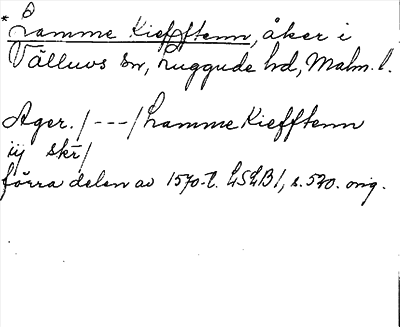 * Lamme Kiefftenn, åker i
Välluvs sn, Luggude hd, Malm. l.
Ager. /---/ Lamme Kiefftenn
iij skr/
förra delen av 1570-t. LSLB 1, s. 570. orig.